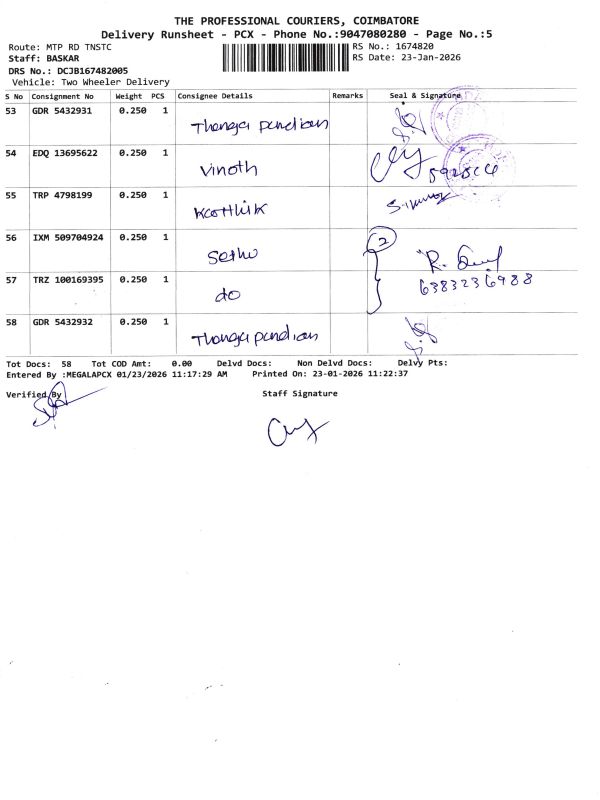 THE PROFESSIONAL COURIERS, COIMBATORE
Delivery Runsheet - PCX - Phone No.:9047080280 - Page No.:5
Route: MTP RD TNSTC
RS No.: 1674820
Staff: BASKAR
RS Date: 23-Jan-2026
DRS No.: DCJB167482005
Vehicle: Two Wheeler Delivery
S No Consignment No Weight PCS Consignee Details Remarks Seal & Signature
53 GDR 5432931 0.250 1 Thanga pandian
54 EDQ 13695622 0.250 1 Vinoth
55 TRP 4798199 0.250 1 Karthik
56 IXM 509704924 0.250 1 Sethu 2
57 TRZ 100169395 0.250 1 do 6383236988
58 GDR 5432932 0.250 1 Thanga pandian
Tot Docs: 58 Tot COD Amt: 0.00 Delvd Docs: Non Delvd Docs: Delvy Pts:
Entered By :MEGALAPCX 01/23/2026 11:17:29 AM Printed On: 23-01-2026 11:22:37
Verified By Staff Signature